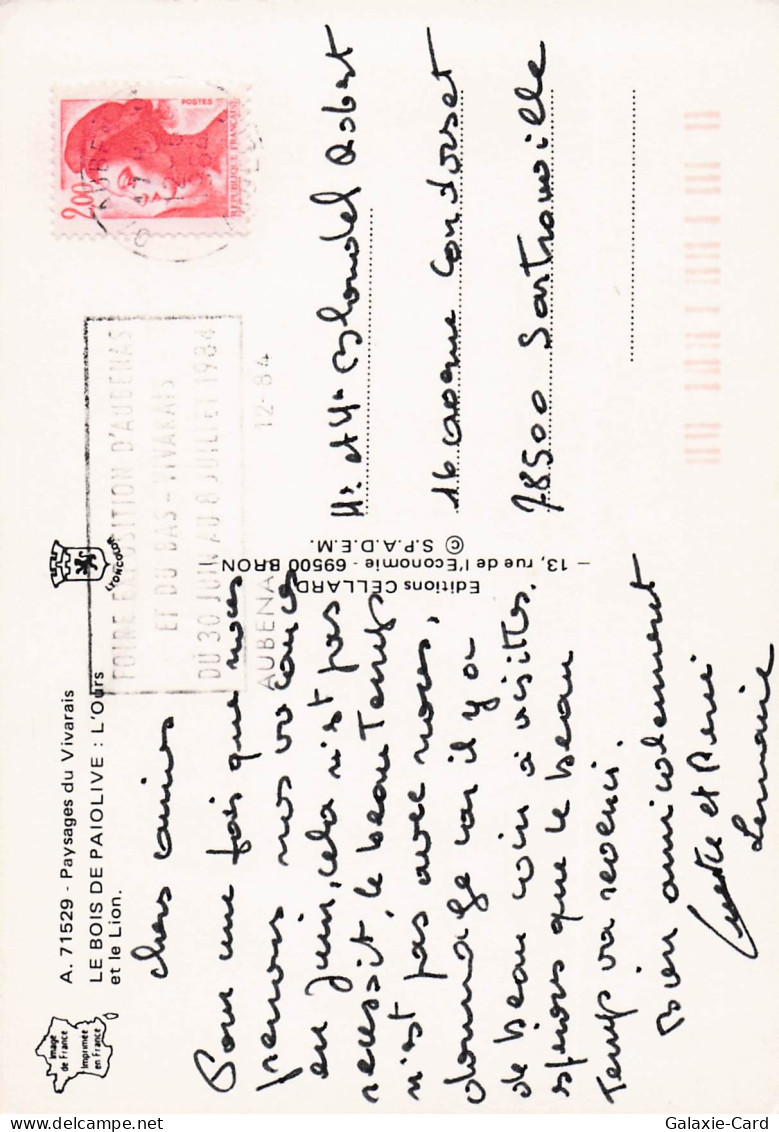 A. 71529 - Paysages du Vivarais
LE BOIS DE PAIOLIVE : L'Ours
et le Lion.
Image
de France
Imprimée
en France
LYONCOLOR
chers amis
Pour une fois que nous
prenons nos vacances
en juin, cela n'est pas
reussit, le beau Temps
n'est pas avec nous,
dommage car il y a
de beau coin à visittes.
spérons que le beau
Temps va revenir.
Bien amicalement
et René
Lemaire
Editions CELLARD
— 13, rue de l'Economie - 69500 BRON
© S.P.A.D.E.M.
FOIRE EXPOSITION D'AUBENAS
ET DU BAS-VIVARAIS
DU 30 JUIN AU 8 JUILLET 1984
AUBENA
12-84
2,00
POSTES
REPUBLIQUE FRANCAISE
Mr et Mme Blondel Robert
16 avenue Condorset
78500 Sartrouville
Galaxie-Card